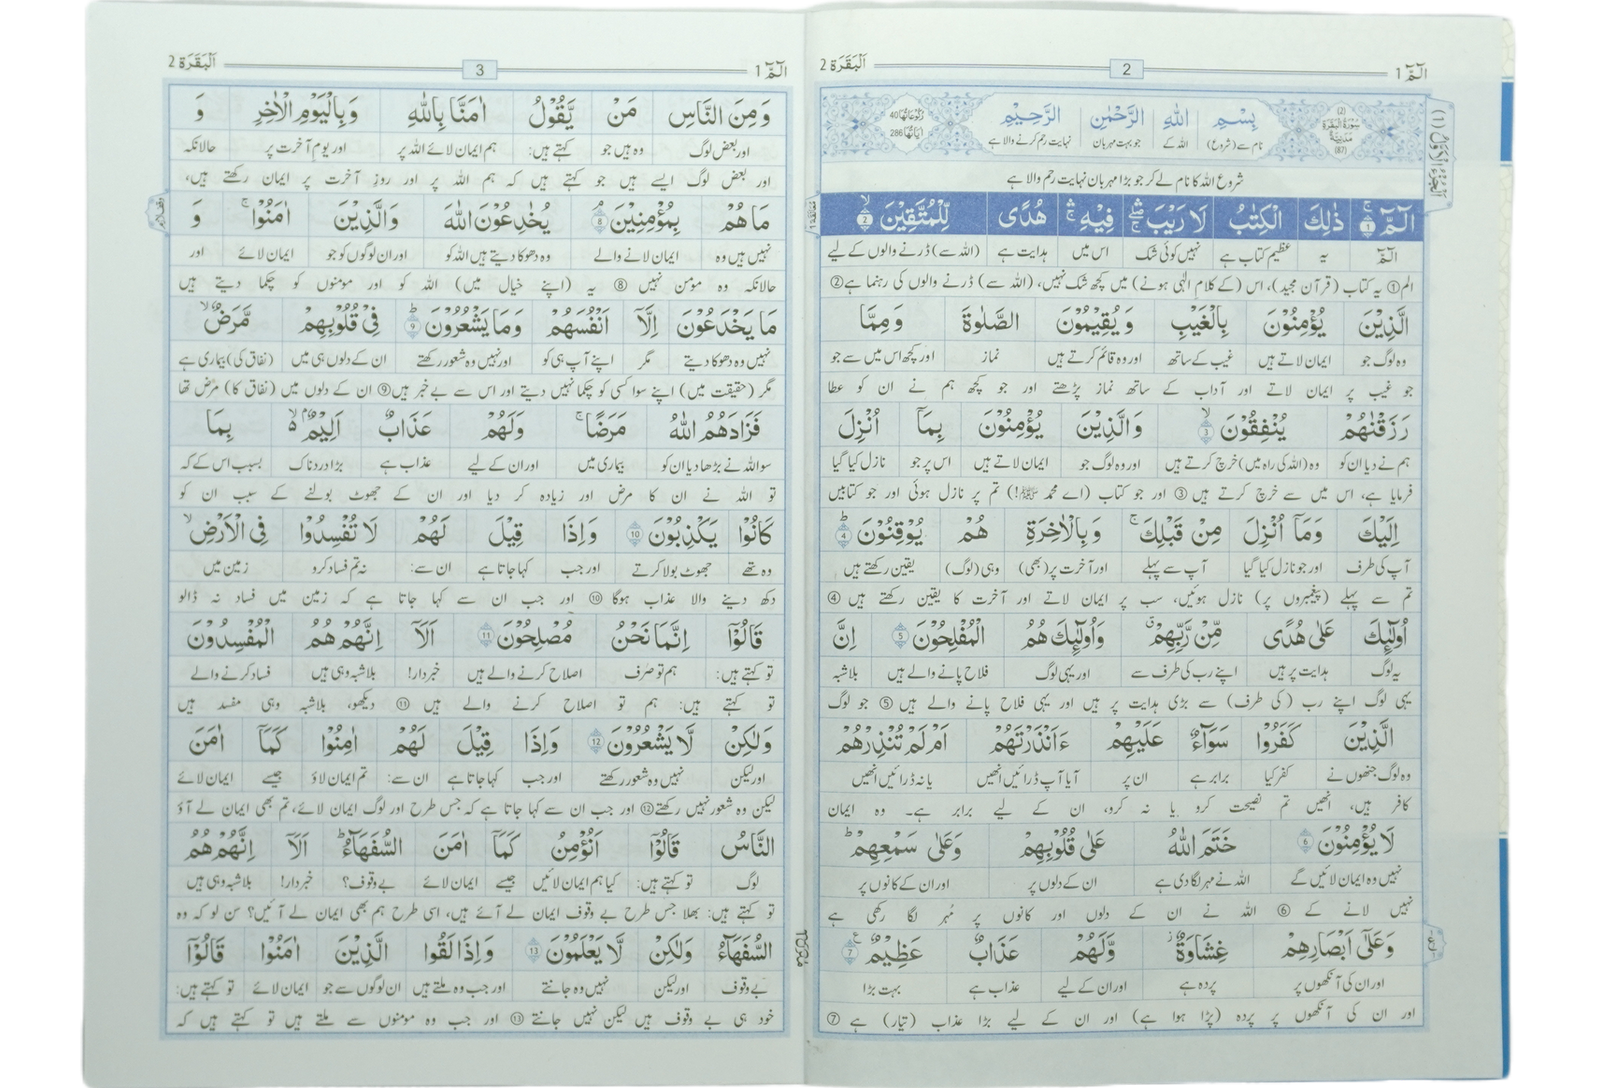 الٓمّٓ 1
2
اَلْبَقَرَة 2
اَلْجُزْءُ الْاَوَّلُ (1)
(2) سُوْرَةُ الْبَقَرَةِ مَدَنِيَّةٌ (87)
بِسْمِ اللّٰهِ الرَّحْمٰنِ الرَّحِيْمِ
رُكُوْعَاتُهَا 40
اٰيَاتُهَا 286
نام سے (شروع) اللہ کے جو بہت مہربان نہایت رحم کرنے والا ہے
شروع اللہ کا نام لے کر جو بڑا مہربان نہایت رحم والا ہے
الٓمّٓ ۚ 1 ذٰلِكَ الْكِتٰبُ لَا رَيْبَ ۛ فِيْهِ ۛ هُدًى لِّلْمُتَّقِيْنَ ۙ 2
الٓمّٓ یہ عظیم کتاب ہے نہیں کوئی شک اس میں ہدایت ہے (اللہ سے) ڈرنے والوں کے لیے
الم ① یہ کتاب (قرآن مجید)، اس (کے کلام الٰہی ہونے) میں کچھ شک نہیں، (اللہ سے) ڈرنے والوں کی رہنما ہے ②
الَّذِيْنَ يُؤْمِنُوْنَ بِالْغَيْبِ وَ يُقِيْمُوْنَ الصَّلٰوةَ وَ مِمَّا
وہ لوگ جو ایمان لاتے ہیں غیب کے ساتھ اور وہ قائم کرتے ہیں نماز اور کچھ اس میں سے جو
جو غیب پر ایمان لاتے اور آداب کے ساتھ نماز پڑھتے اور جو کچھ ہم نے ان کو عطا
رَزَقْنٰهُمْ يُنْفِقُوْنَ ۙ 3 وَالَّذِيْنَ يُؤْمِنُوْنَ بِمَآ اُنْزِلَ
ہم نے دیا ان کو وہ (اللہ کی راہ میں) خرچ کرتے ہیں اور وہ لوگ جو ایمان لاتے ہیں اس پر جو نازل کیا گیا
فرمایا ہے، اس میں سے خرچ کرتے ہیں ③ اور جو کتاب (اے محمد ﷺ!) تم پر نازل ہوئی اور جو کتابیں
اِلَيْكَ وَمَآ اُنْزِلَ مِنْ قَبْلِكَ ۚ وَ بِالْاٰخِرَةِ هُمْ يُوْقِنُوْنَ ؕ 4
آپ کی طرف اور جو نازل کیا گیا آپ سے پہلے اور آخرت پر (بھی) وہی (لوگ) یقین رکھتے ہیں
تم سے پہلے (پیغمبروں پر) نازل ہوئیں، سب پر ایمان لاتے اور آخرت کا یقین رکھتے ہیں ④
اُولٰٓئِكَ عَلٰى هُدًى مِّنْ رَّبِّهِمْ ۗ وَاُولٰٓئِكَ هُمُ الْمُفْلِحُوْنَ 5 اِنَّ
یہ لوگ ہدایت پر ہیں اپنے رب کی طرف سے اور یہی لوگ فلاح پانے والے ہیں بلاشبہ
یہی لوگ اپنے رب (کی طرف) سے بڑی ہدایت پر ہیں اور یہی فلاح پانے والے ہیں ⑤ جو لوگ
الَّذِيْنَ كَفَرُوْا سَوَآءٌ عَلَيْهِمْ ءَاَنْذَرْتَهُمْ اَمْ لَمْ تُنْذِرْهُمْ
وہ لوگ جنھوں نے کفر کیا برابر ہے ان پر آیا آپ ڈرائیں انھیں یا نہ ڈرائیں انھیں
کافر ہیں، انھیں تم نصیحت کرو یا نہ کرو، ان کے لیے برابر ہے۔ وہ ایمان
لَا يُؤْمِنُوْنَ 6 خَتَمَ اللّٰهُ عَلٰى قُلُوْبِهِمْ وَعَلٰى سَمْعِهِمْ ؕ
نہیں وہ ایمان لائیں گے اللہ نے مہر لگا دی ہے ان کے دلوں پر اور ان کے کانوں پر
نہیں لانے کے ⑥ اللہ نے ان کے دلوں اور کانوں پر مُہر لگا رکھی ہے
وَعَلٰٓى اَبْصَارِهِمْ غِشَاوَةٌ ز وَّلَهُمْ عَذَابٌ عَظِيْمٌ 7
اور ان کی آنکھوں پر پردہ ہے اور ان کے لیے عذاب ہے بہت بڑا
اور ان کی آنکھوں پر پردہ (پڑا ہوا ہے) اور ان کے لیے بڑا عذاب (تیار) ہے ⑦
الٓمّٓ 1
3
اَلْبَقَرَة 2
وَمِنَ النَّاسِ مَنْ يَّقُوْلُ اٰمَنَّا بِاللّٰهِ وَبِالْيَوْمِ الْاٰخِرِ وَ
اور بعض لوگ وہ ہیں جو کہتے ہیں: ہم ایمان لائے اللہ پر اور یوم آخرت پر حالانکہ
اور بعض لوگ ایسے ہیں جو کہتے ہیں کہ ہم اللہ پر اور روزِ آخرت پر ایمان رکھتے ہیں،
مَا هُمْ بِمُؤْمِنِيْنَ ۘ 8 يُخٰدِعُوْنَ اللّٰهَ وَالَّذِيْنَ اٰمَنُوْا ۚ وَ
نہیں ہیں وہ ایمان لانے والے وہ دھوکا دیتے ہیں اللہ کو اور ان لوگوں کو جو ایمان لائے اور
حالانکہ وہ مؤمن نہیں ⑧ یہ (اپنے خیال میں) اللہ کو اور مومنوں کو چکما دیتے ہیں
مَا يَخْدَعُوْنَ اِلَّآ اَنْفُسَهُمْ وَمَا يَشْعُرُوْنَ ؕ 9 فِيْ قُلُوْبِهِمْ مَّرَضٌ ۙ
نہیں وہ دھوکا دیتے مگر اپنے آپ ہی کو اور نہیں وہ شعور رکھتے ان کے دلوں ہی میں (نفاق کی) بیماری ہے
مگر (حقیقت میں) اپنے سوا کسی کو چکما نہیں دیتے اور اس سے بے خبر ہیں ⑨ ان کے دلوں میں (نفاق کا) مرض تھا
فَزَادَهُمُ اللّٰهُ مَرَضًا ۚ وَلَهُمْ عَذَابٌ اَلِيْمٌ ۙ بِمَا
سو اللہ نے بڑھا دیا ان کو بیماری میں اور ان کے لیے عذاب ہے بڑا دردناک بسبب اس کے کہ
تو اللہ نے ان کا مرض اور زیادہ کر دیا اور ان کے جھوٹ بولنے کے سبب ان کو
كَانُوْا يَكْذِبُوْنَ 10 وَاِذَا قِيْلَ لَهُمْ لَا تُفْسِدُوْا فِي الْاَرْضِ ۙ
وہ تھے جھوٹ بولا کرتے اور جب کہا جاتا ہے ان سے: نہ تم فساد کرو زمین میں
دکھ دینے والا عذاب ہوگا ⑩ اور جب ان سے کہا جاتا ہے کہ زمین میں فساد نہ ڈالو
قَالُوْٓا اِنَّمَا نَحْنُ مُصْلِحُوْنَ 11 اَلَآ اِنَّهُمْ هُمُ الْمُفْسِدُوْنَ
تو کہتے ہیں: ہم تو صرف اصلاح کرنے والے ہیں خبردار! بلاشبہ وہی ہیں فساد کرنے والے
تو کہتے ہیں: ہم تو اصلاح کرنے والے ہیں ⑪ دیکھو، بلاشبہ وہی مفسد ہیں
وَلٰكِنْ لَّا يَشْعُرُوْنَ 12 وَاِذَا قِيْلَ لَهُمْ اٰمِنُوْا كَمَآ اٰمَنَ
اور لیکن نہیں وہ شعور رکھتے اور جب کہا جاتا ہے ان سے: تم ایمان لاؤ جیسے ایمان لائے
لیکن وہ شعور نہیں رکھتے ⑫ اور جب ان سے کہا جاتا ہے کہ جس طرح اور لوگ ایمان لائے، تم بھی ایمان لے آؤ
النَّاسُ قَالُوْٓا اَنُؤْمِنُ كَمَآ اٰمَنَ السُّفَهَآءُ ؕ اَلَآ اِنَّهُمْ هُمُ
لوگ تو کہتے ہیں: کیا ہم ایمان لائیں جیسے ایمان لائے بے وقوف؟ خبردار! بلاشبہ وہی ہیں
تو کہتے ہیں: بھلا جس طرح بے وقوف ایمان لے آئے ہیں، اسی طرح ہم بھی ایمان لے آئیں؟ سن لو کہ وہ
السُّفَهَآءُ وَلٰكِنْ لَّا يَعْلَمُوْنَ 13 وَاِذَا لَقُوا الَّذِيْنَ اٰمَنُوْا قَالُوْٓا
بے وقوف اور لیکن نہیں وہ جانتے اور جب وہ ملتے ہیں ان لوگوں سے جو ایمان لائے تو کہتے ہیں:
خود ہی بے وقوف ہیں لیکن نہیں جانتے ⑬ اور جب وہ مومنوں سے ملتے ہیں تو کہتے ہیں کہ